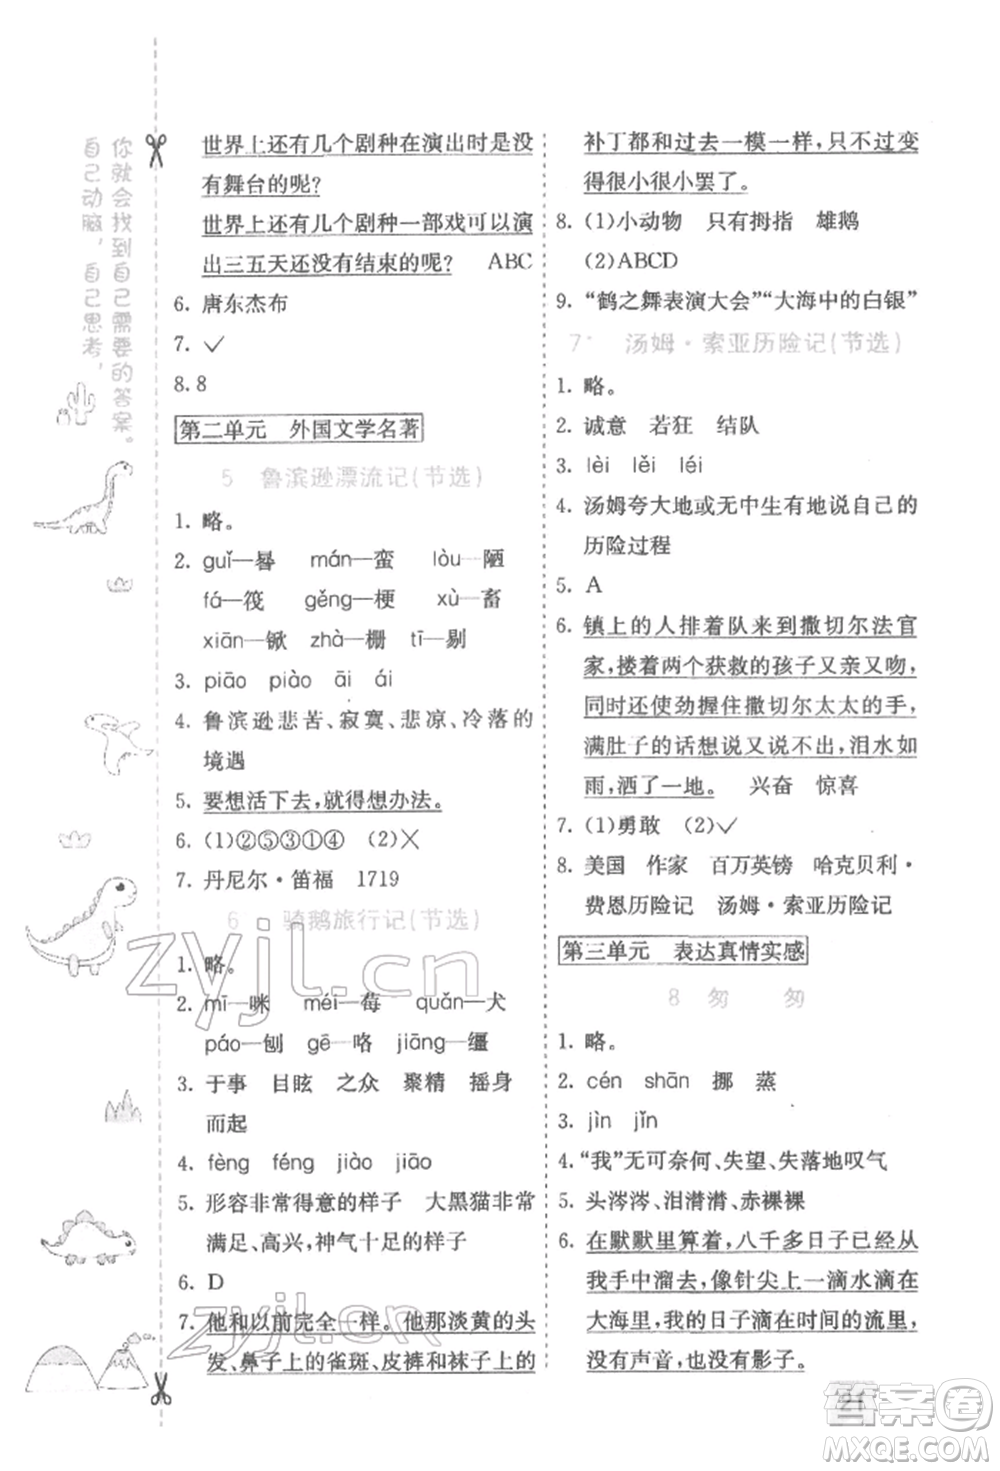 你就会找到自己需要的答案。
自己动脑，自己思考，
世界上还有几个剧种在演出时是没
有舞台的呢?
世界上还有几个剧种一部戏可以演
出三五天还没有结束的呢? ABC
6. 唐东杰布
7. ✓
8. 8
第二单元 外国文学名著
5 鲁滨逊漂流记(节选)
1. 略。
2. guǐ—晷 mán—蛮 lòu—陋
fá—筏 gěng—梗 xù—畜
xiān—锨 zhà—栅 tī—剔
3. piāo piào āi ái
4. 鲁滨逊悲苦、寂寞、悲凉、冷落的
境遇
5. 要想活下去,就得想办法。
6. (1)②⑤③①④ (2)✕
7. 丹尼尔·笛福 1719
6 骑鹅旅行记(节选)
1. 略。
2. mī—咪 méi—莓 quǎn—犬
páo—刨 gē—咯 jiāng—缰
3. 于事 目眩 之众 聚精 摇身
而起
4. fèng féng jiào jiāo
5. 形容非常得意的样子 大黑猫非常
满足、高兴,神气十足的样子
6. D
7. 他和以前完全一样。他那淡黄的头
发、鼻子上的雀斑、皮裤和袜子上的
补丁都和过去一模一样,只不过变
得很小很小罢了。
8. (1)小动物 只有拇指 雄鹅
(2)ABCD
9. “鹤之舞表演大会”“大海中的白银”
7 汤姆·索亚历险记(节选)
1. 略。
2. 诚意 若狂 结队
3. lèi lěi léi
4. 汤姆夸大地或无中生有地说自己的
历险过程
5. A
6. 镇上的人排着队来到撒切尔法官
家,搂着两个获救的孩子又亲又吻,
同时还使劲握住撒切尔太太的手,
满肚子的话想说又说不出,泪水如
雨,洒了一地。 兴奋 惊喜
7. (1)勇敢 (2)✓
8. 美国 作家 百万英镑 哈克贝利·
费恩历险记 汤姆·索亚历险记
第三单元 表达真情实感
8 匆 匆
1. 略。
2. cén shān 挪 蒸
3. jìn jǐn
4. “我”无可奈何、失望、失落地叹气
5. 头涔涔、泪潸潸、赤裸裸
6. 在默默里算着,八千多日子已经从
我手中溜去,像针尖上一滴水滴在
大海里,我的日子滴在时间的流里,
没有声音,也没有影子。
21
zyjl.cn
zyjl.cn
答案卷
MXQE.COM